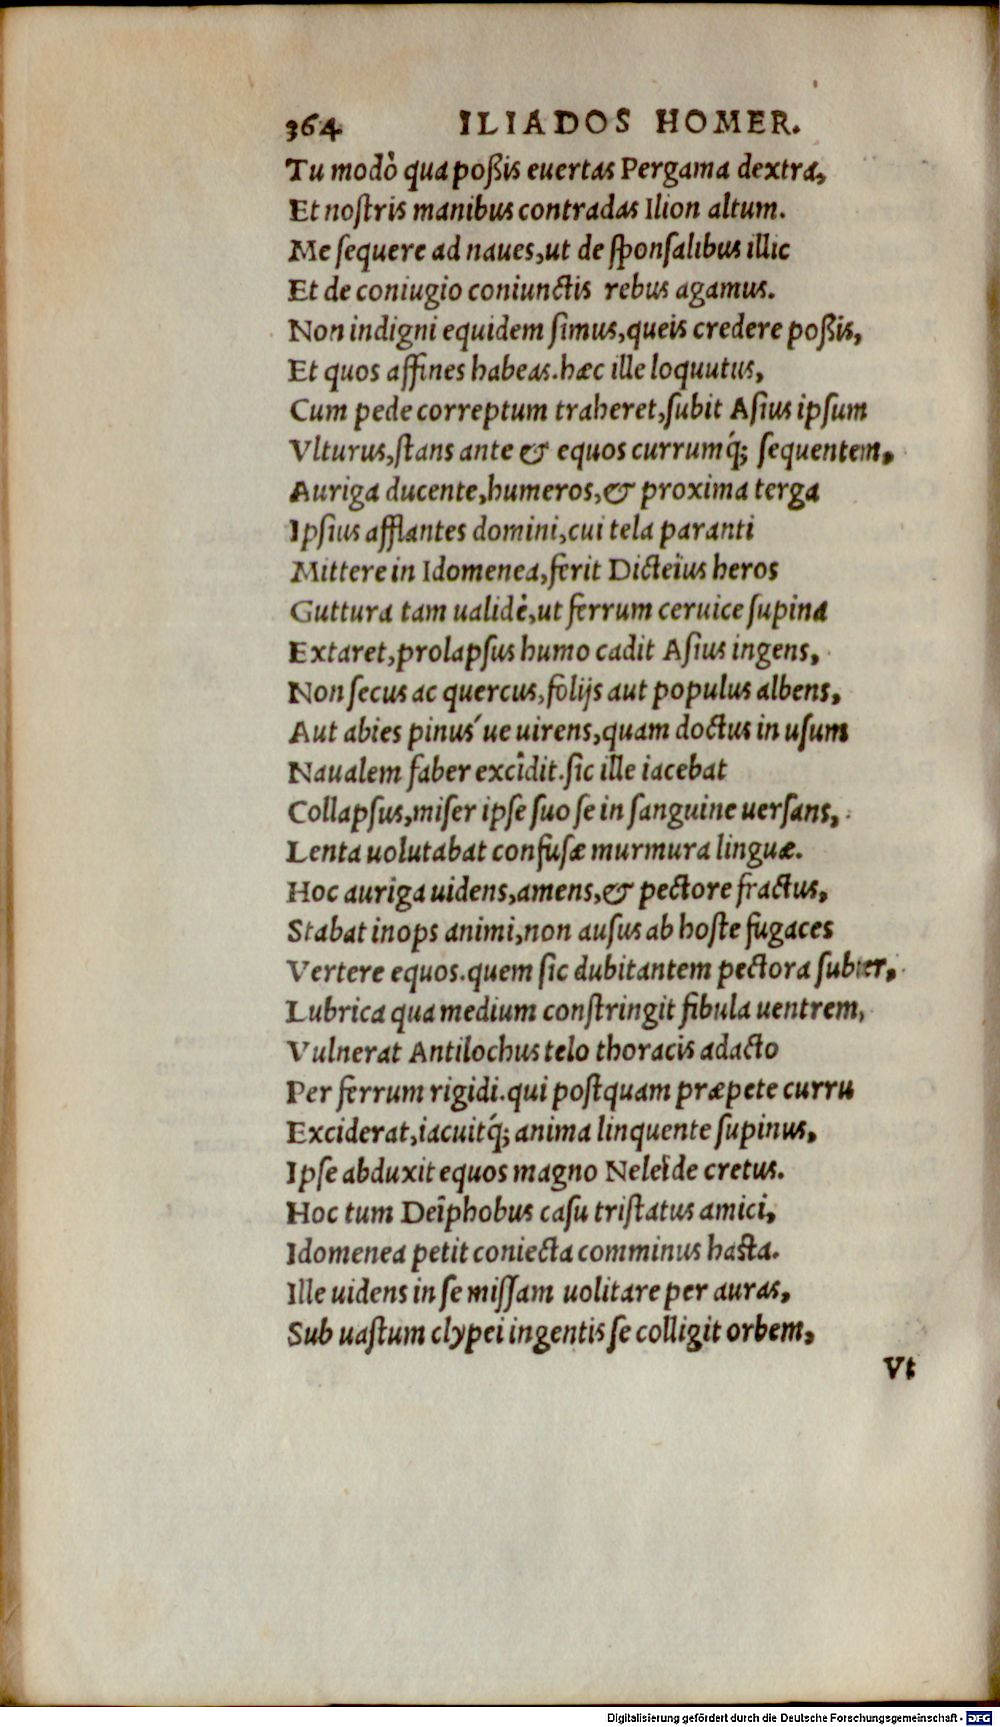 364 ILIADOS HOMER.
Tu modò qua poßis euertas Pergama dextra,
Et noſtris manibus contradas Ilion altum.
Me ſequere ad naues, ut de ſponſalibus illic
Et de coniugio coniunctis rebus agamus.
Non indigni equidem ſimus, queis credere poßis,
Et quos affines habeas. hæc ille loquutus,
Cum pede correptum traheret, ſubit Aſius ipſum
Vlturus, ſtans ante & equos currumq́; ſequentem,
Auriga ducente, humeros, & proxima terga
Ipſius afflantes domini, cui tela paranti
Mittere in Idomenea, ferit Dicteïus heros
Guttura tam ualidè, ut ferrum ceruice ſupina
Extaret, prolapſus humo cadit Aſius ingens,
Non ſecus ac quercus, folijs aut populus albens,
Aut abies pinus´ue uirens, quam doctus in uſum
Naualem faber excîdit. ſic ille iacebat
Collapſus, miſer ipſe ſuo ſe in ſanguine uerſans,
Lenta uolutabat confuſæ murmura linguæ.
Hoc auriga uidens, amens, & pectore fractus,
Stabat inops animi, non auſus ab hoſte fugaces
Vertere equos. quem ſic dubitantem pectora ſubter,
Lubrica qua medium conſtringit fibula uentrem,
Vulnerat Antilochus telo thoracis adacto
Per ferrum rigidi. qui poſtquam præpete curru
Exciderat, iacuitq́; anima linquente ſupinus,
Ipſe abduxit equos magno Neleïde cretus.
Hoc tum Deïphobus caſu triſtatus amici,
Idomenea petit coniecta comminus haſta.
Ille uidens in ſe miſſam uolitare per auras,
Sub uaſtum clypei ingentis ſe colligit orbem,
Vt
Digitalisierung gefördert durch die Deutsche Forschungsgemeinschaft - DFG